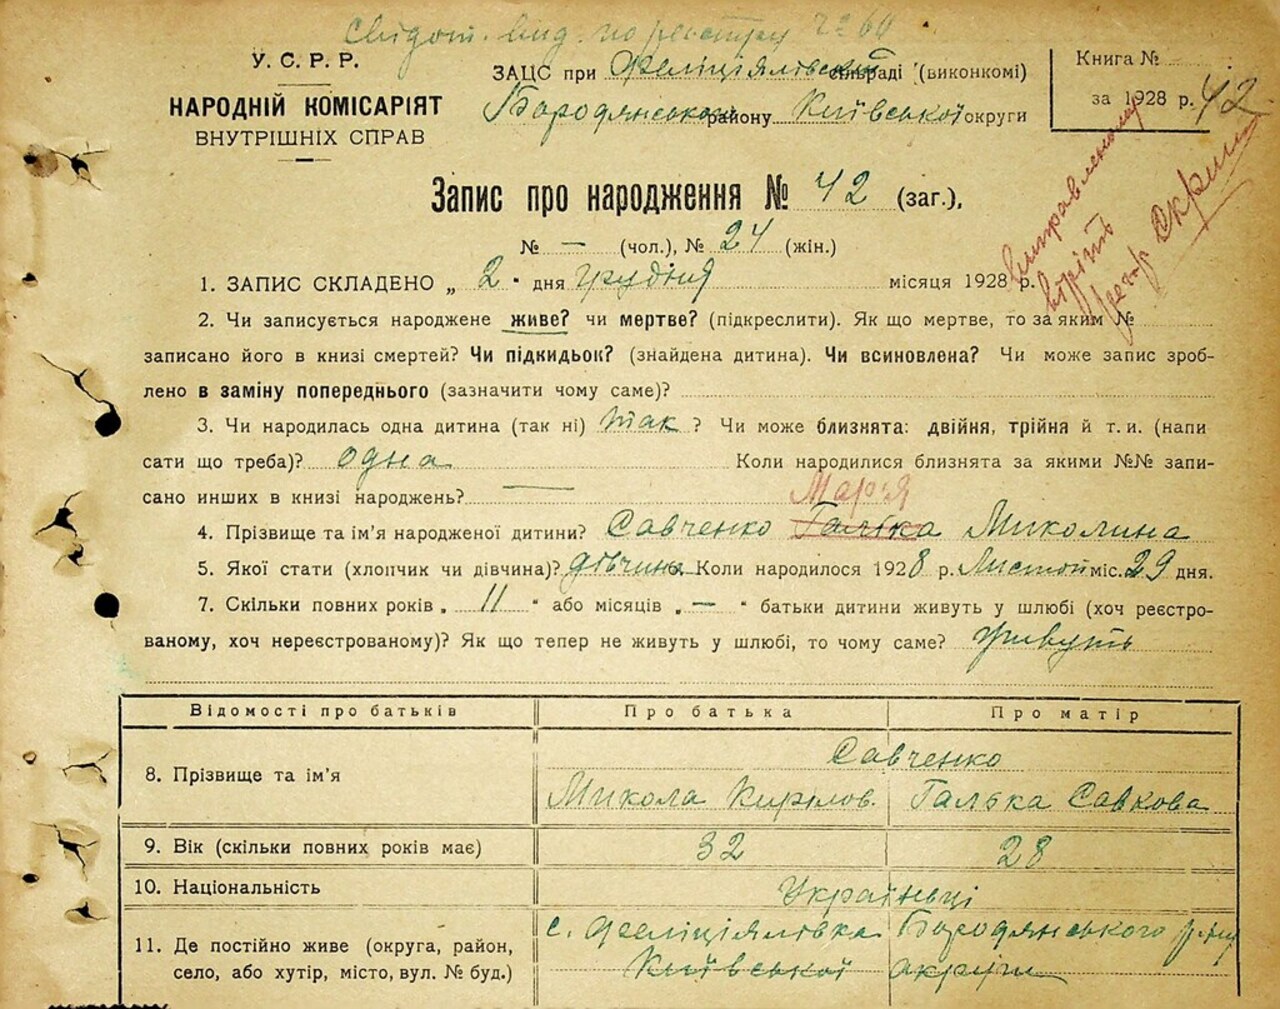 Свідот. вид. по реєстру № 60
У. С. Р. Р.
НАРОДНІЙ КОМІСАРІЯТ
ВНУТРІШНІХ СПРАВ
ЗАЦС при Феліціялівській сільраді (виконкомі)
Бородянського району Київської округи
Книга №
за 1928 р. 42
Запис про народження № 42 (заг.),
№ — (чол.), № 24 (жін.)
виправленому
вірить
Скрип
1. ЗАПИС СКЛАДЕНО „ 2 " дня грудня місяця 1928 р.
2. Чи записується народжене живе? чи мертве? (підкреслити). Як що мертве, то за яким №
записано його в книзі смертей? Чи підкидьок? (знайдена дитина). Чи всиновлена? Чи може запис зроб-
лено в заміну попереднього (зазначити чому саме)?
3. Чи народилась одна дитина (так ні) так ? Чи може близнята: двійня, трійня й т. и. (напи
сати що треба)? одна Коли народилися близнята за якими №№ запи-
сано инших в книзі народжень? —
Марія
4. Прізвище та ім'я народженої дитини? Савченко Галька Миколина
5. Якої стати (хлопчик чи дівчина)? дівчина Коли народилося 1928 р. Листоп міс. 29 дня.
7. Скільки повних років „ 11 " або місяців „ — " батьки дитини живуть у шлюбі (хоч реєстро-
ваному, хоч нереєстрованому)? Як що тепер не живуть у шлюбі, то чому саме? живуть
Відомості про батьків Про батька Про матір
8. Прізвище та ім'я Савченко
Микола Кирилов. Галька Савкова
9. Вік (скільки повних років має) 32 28
10. Національність Українці
11. Де постійно живе (округа, район,
село, або хутір, місто, вул. № буд.)
с. Феліціялівка Бородянського р-ну
Київської округи